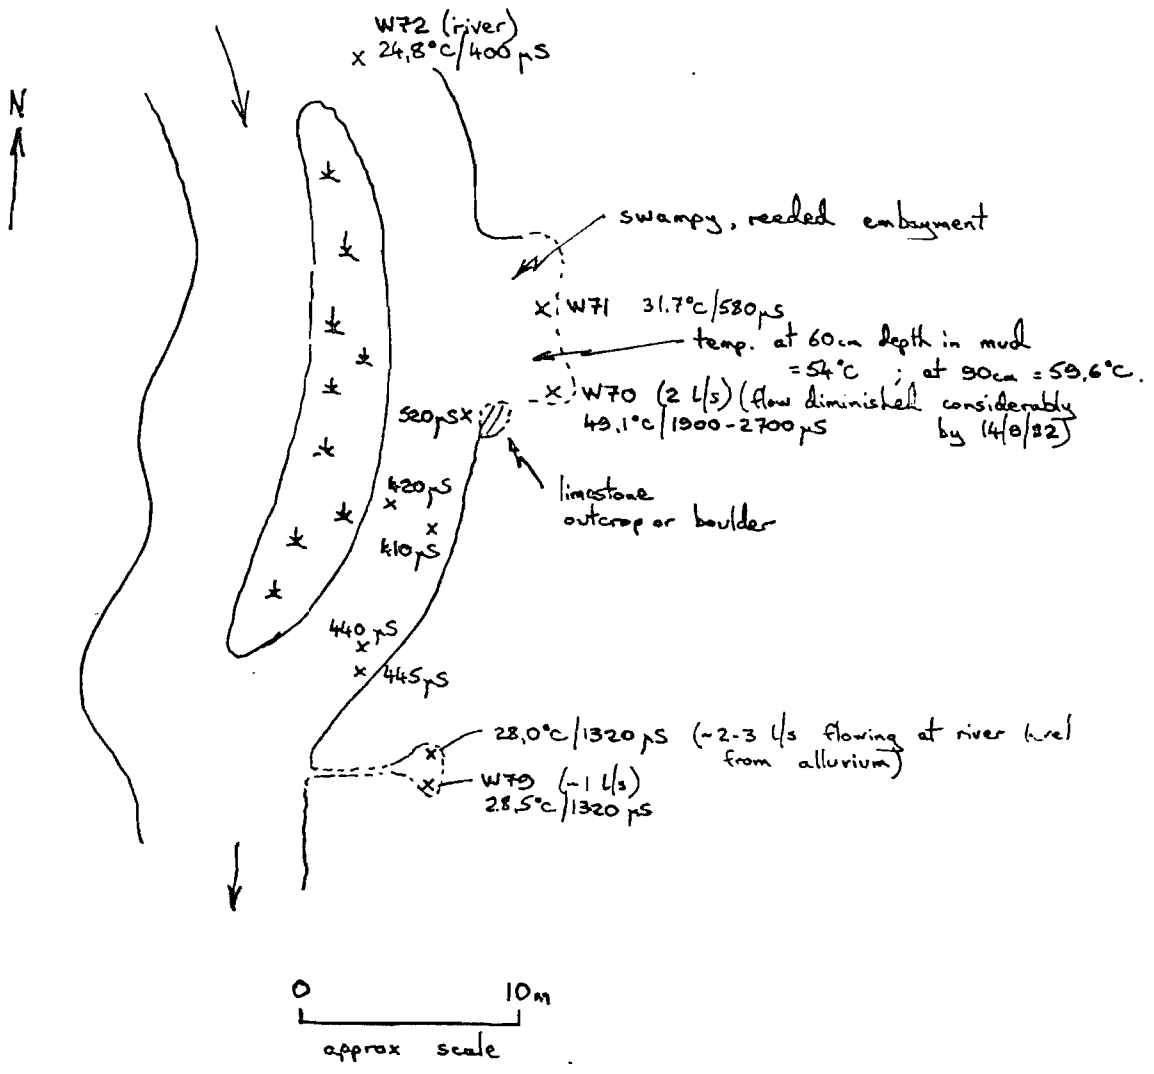 W72 (river)
24,8°C/400 µS
N
swampy, reeded embayment
W71 31.7°C/580µS
temp. at 60cm depth in mud
= 54°C ; at 90cm = 59,6°C.
W70 (2 l/s) (flow diminished considerably
49,1°C/1900-2700µS by 14/9/82)
520µS
limestone
outcrop or boulder
420µS
410µS
440µS
445µS
28,0°C/1320µS (~2-3 l/s flowing at river level
from alluvium)
W79 (~1 l/s)
28,5°C/1320µS
0 10m
approx scale